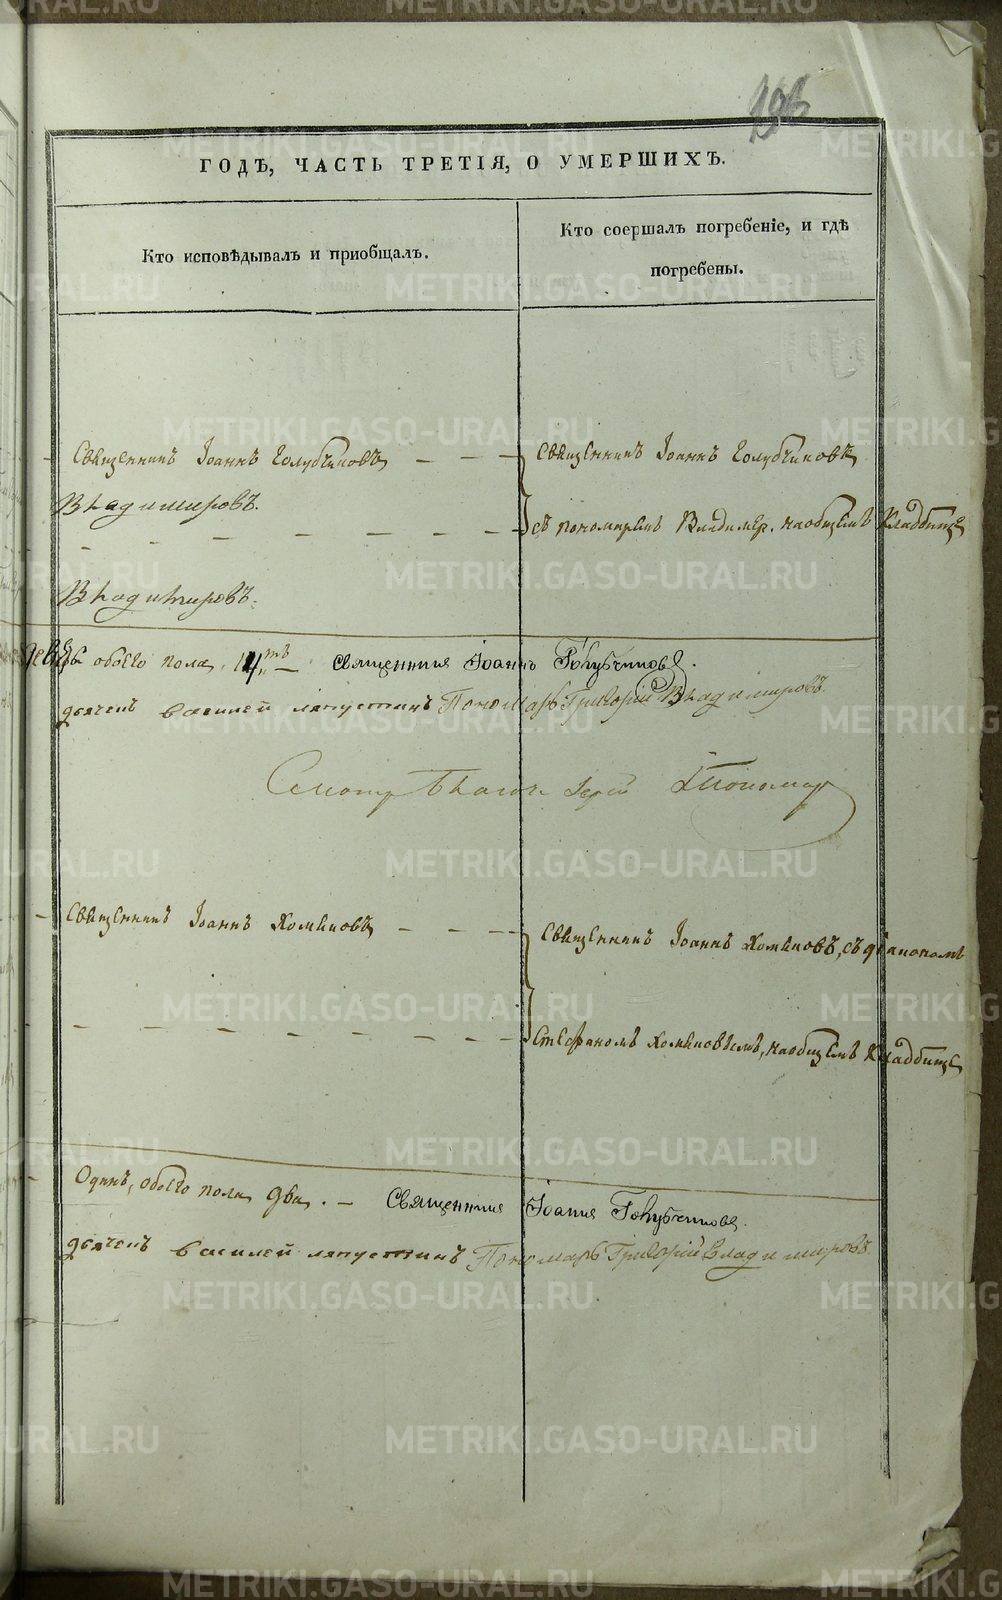 196
ГОДЪ, ЧАСТЬ ТРЕТІЯ, О УМЕРШИХЪ.
Кто исповѣдывалъ и приобщалъ.
Кто соершалъ погребеніе, и гдѣ
погребены.
Священникъ Іоаннъ Голубчиковъ
Священникъ Іоаннъ Голубчиковъ
Владимировъ.
съ пономаремъ Владимер. на общемъ кладбище
Владимировъ.
обоего пола 14ть Священникъ Іоаннъ Голубчиковъ.
дьячекъ василей ляпустинъ Пономарь Григорій Владимировъ.
Священникъ Іоаннъ Хомяковъ
Священникъ Іоаннъ Хомяковъ, съ діакономъ
Стефаномъ Хомяковымъ, на общемъ кладбище
Одинъ, обоего пола два. — Священникъ Іоаннъ Голубчиковъ.
дьячекъ василей ляпустинъ Пономарь Григорій Владимировъ.
METRIKI.GASO-URAL.RU